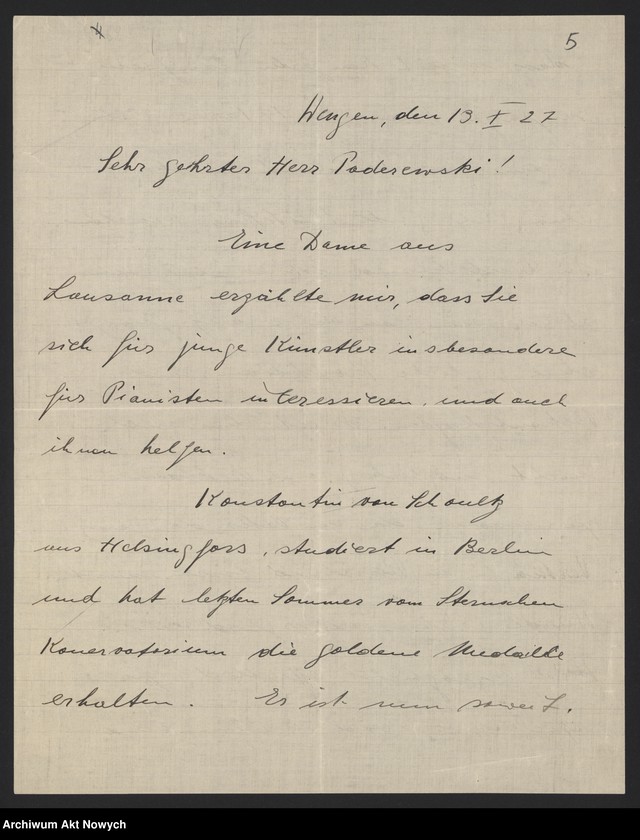 5
Wengen, den 13. X 27
Sehr geehrter Herr Paderewski!
Eine Dame aus
Lausanne erzählte mir, dass Sie
sich für junge Künstler insbesondere
für Pianisten interessieren und auch
ihnen helfen.
Konstantin von Schoultz
aus Helsingfors, studiert in Berlin
und hat letzten Sommer vom Sternschen
Konervatorium die goldene Medaille
erhalten. Er ist nun soweit,
Archiwum Akt Nowych